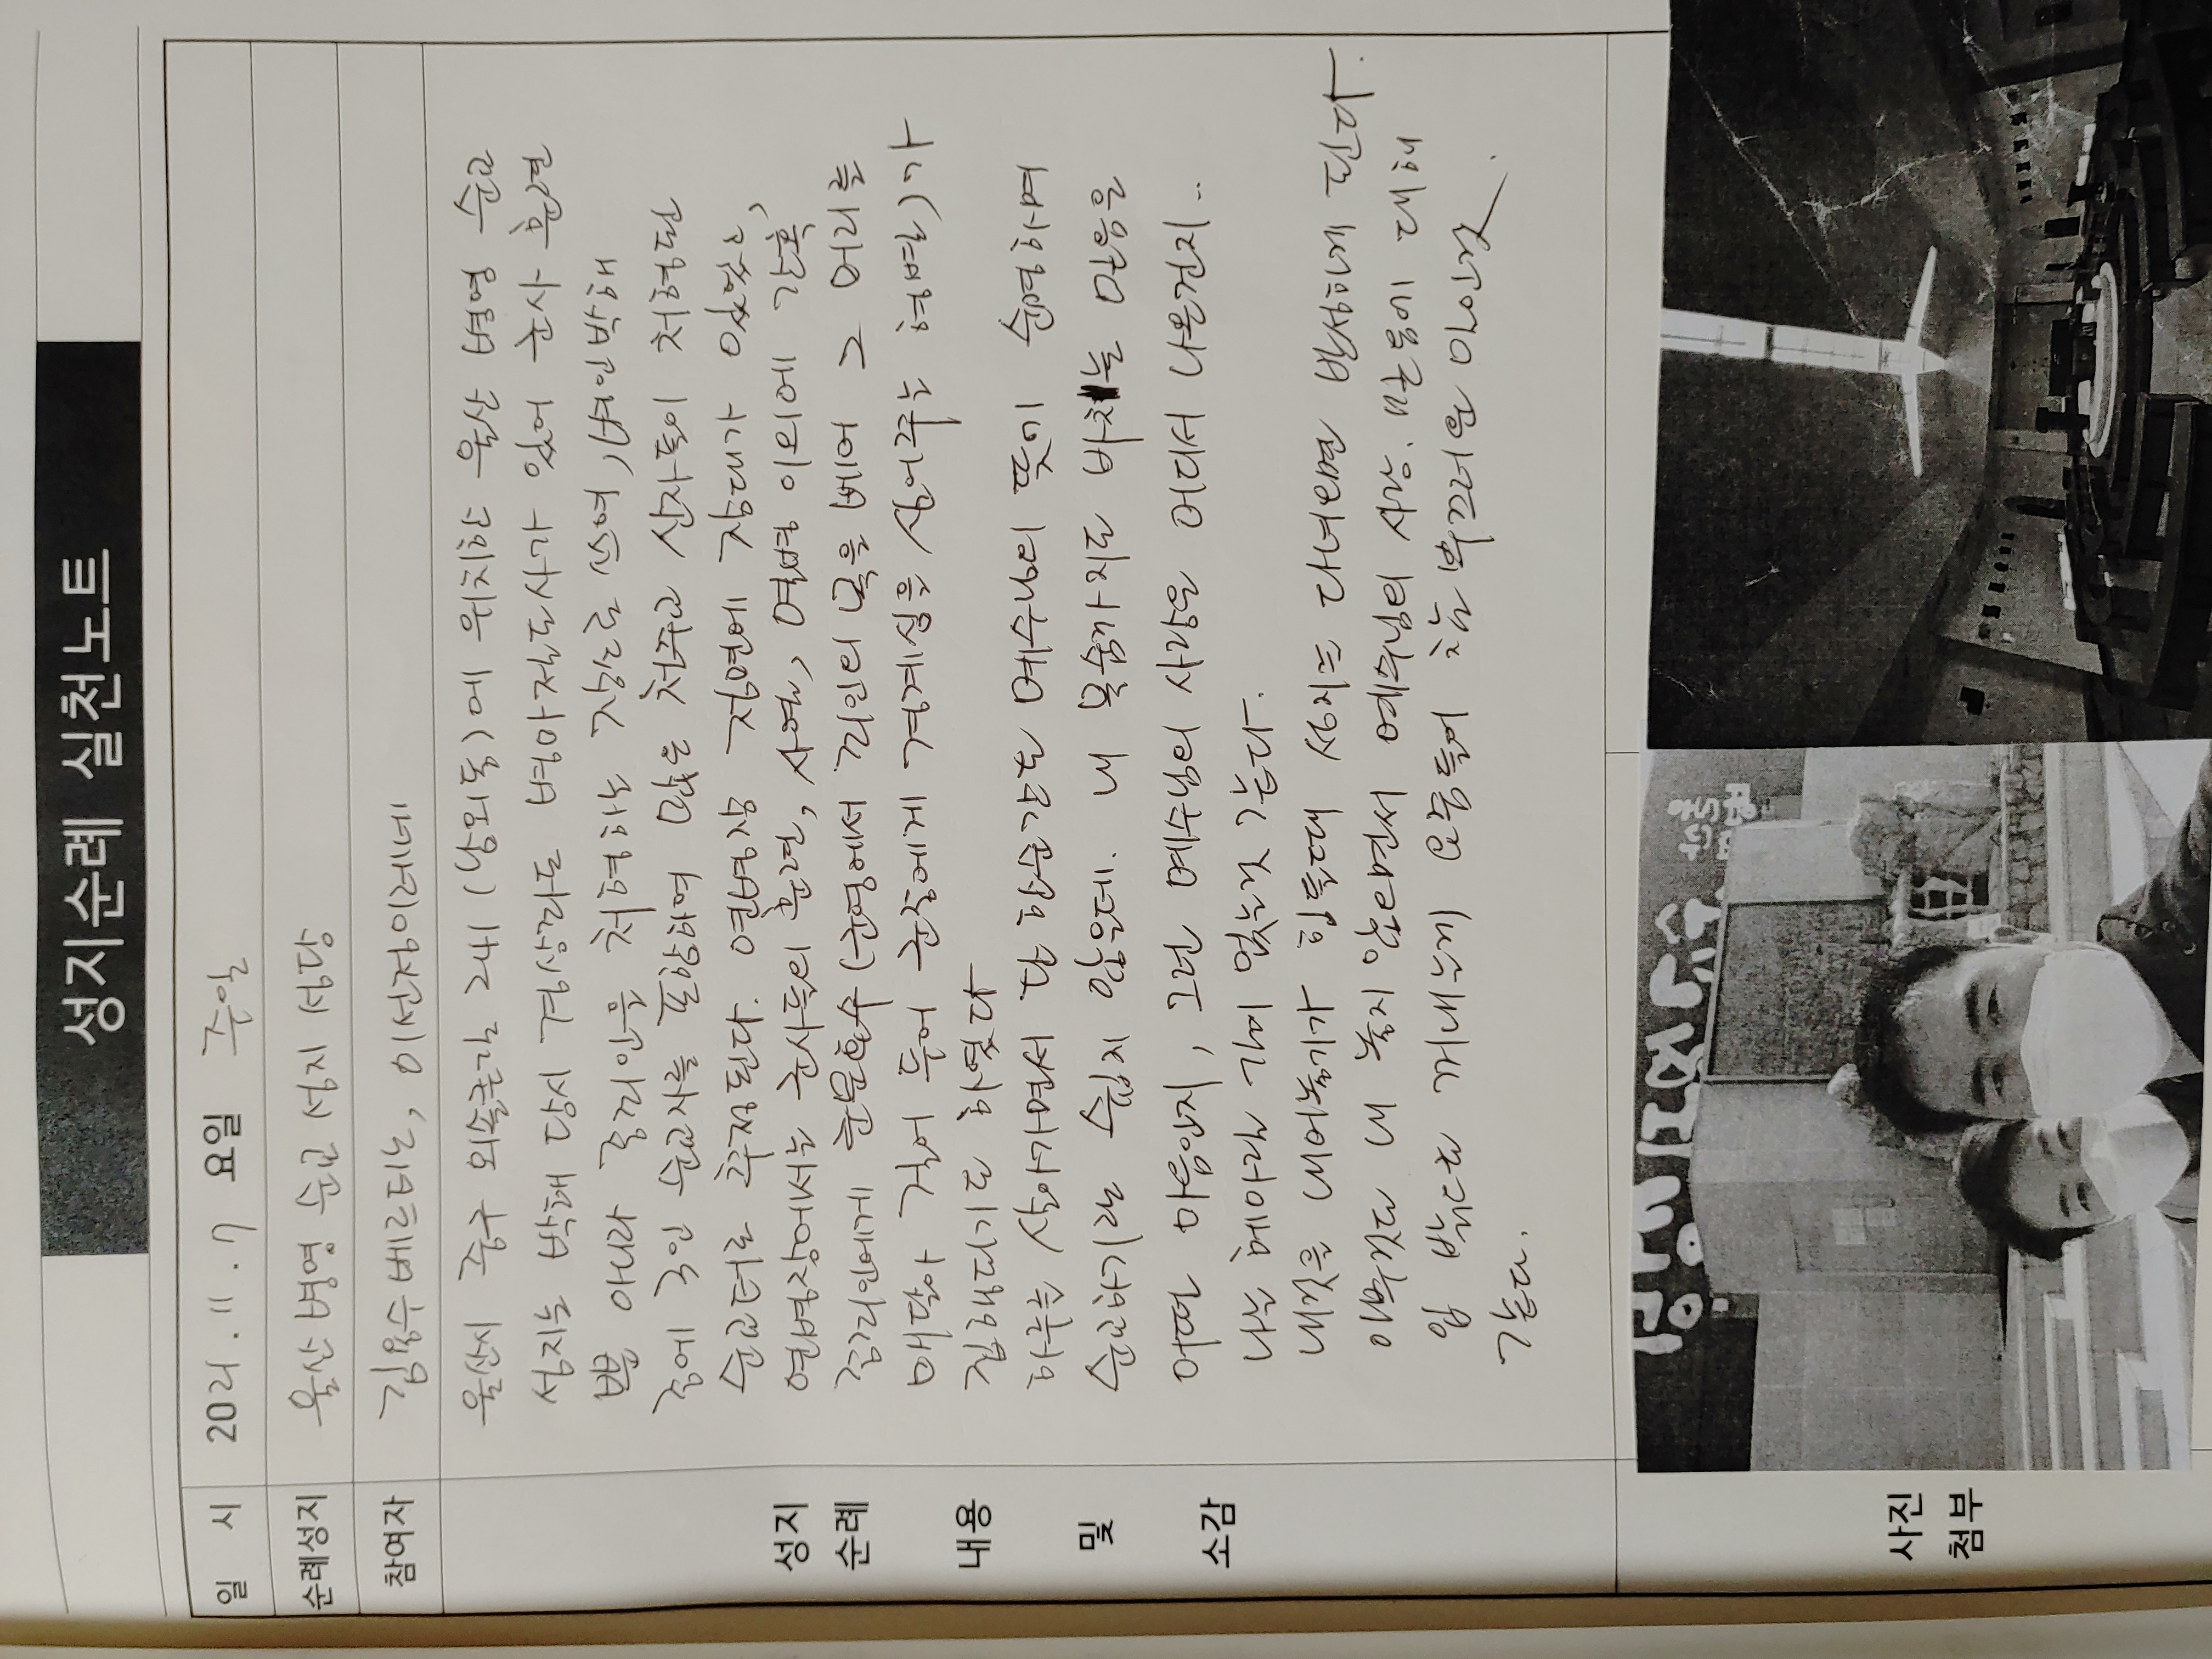 성지순례 실천노트
일 시 2021. 11. 7 요일 주일
순례성지 울산 병영 순교 성지 성당
참여자 김용수베르티노, 이선정이레네
성지 순례 내용 및 소감
울산시 중구 외솔큰길 241 (남외동)에 위치한 울산 병영 순교
성지는 박해 당시 경상좌도 병마절도사가 있어 군사 훈련
뿐 아니라 중죄인을 처형하는 장소로 쓰여, 병인박해
중에 3인 순교자를 포함하여 많은 천주교 신자들이 처형된
순교터로 추정된다. 연병장 정면에 장대가 있었고,
연병장에서는 군사들의 훈련, 사열, 열병 이외에 간혹
중죄인에게 군문효수 (군영에서 죄인의 목을 베어 그 머리를
매달아 걸어 두어 군중에게 경계심을 심어주는 형벌)가
집행되기도 하였다
하루를 살아가면서 단 한순간도 예수님의 뜻에 순명하며
순교하기란 쉽지 않은데. 내 목숨까지도 바치는 믿음은
어떤 마음인지, 그런 예수님의 사랑은 어디서 나온건지..
나는 헤아릴 길이 없는것 같다.
내것을 내어놓기가 힘들때 성지를 다녀오면 반성하게 된다.
아무것도 내 놓지 않으면서 예수님의 사랑. 믿음에 대해
입 밖으로 꺼내는게 요즘들어 참 부끄러운 일인것
같다.
사진 첨부
울산병영
순교성지성당